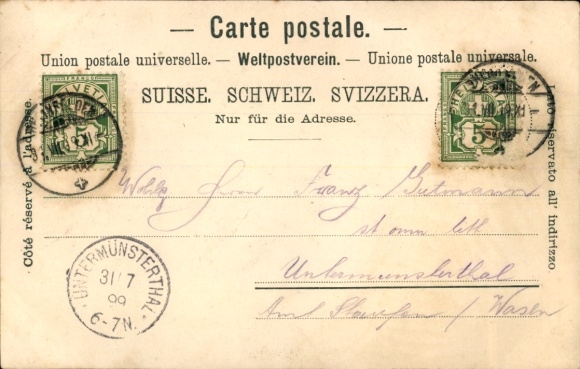 — Carte postale. —
Union postale universelle. — Weltpostverein. — Unione postale universale.
SUISSE. SCHWEIZ. SVIZZERA.
Nur für die Adresse.
Côté réservé à l'adresse.
riservato all' indirizzo.
FRANCO
HELVETIA
5
5
RHEINFELDEN
UNTERMÜNSTERTHAL
31 7
99
6-7N.
Herrn Franz Gutmann
Untermünsterthal
Amt Staufen / Wasen